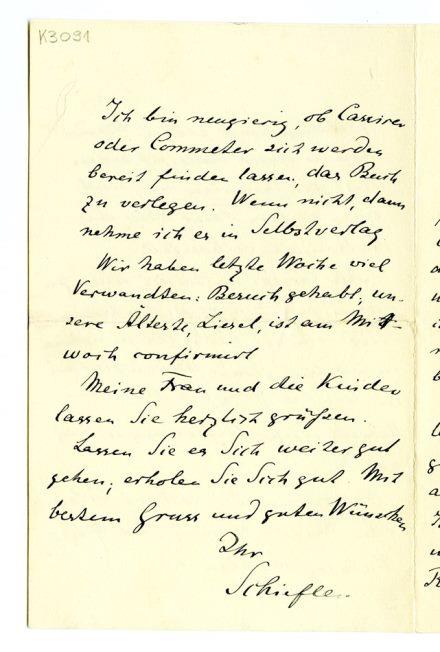 K3091
Ich bin neugierig, ob Cassirer
oder Commeter sich werden
bereit finden lassen, das Buch
zu verlegen. Wenn nicht, dann
nehme ich es in Selbstverlag
Wir haben letzte Woche viel
Verwandten-Besuch gehabt, un-
sere Älteste, Liesel, ist am Mitt-
woch confirmirt
Meine Frau und die Kinder
lassen Sie herzlich grüßen.
Lassen Sie es Sich weiter gut
gehen; erholen Sie Sich gut. Mit
bestem Gruss und guten Wünschen
Ihr
Schiefler.